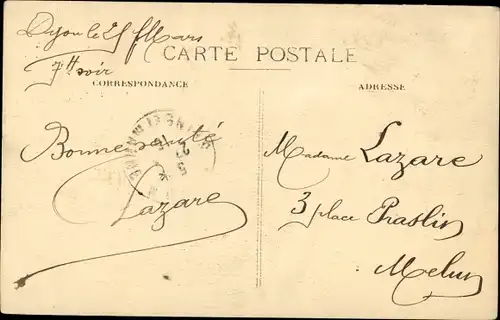 Dijon le 25 Mars
7H soir
CARTE POSTALE
CORRESPONDANCE
ADRESSE
Bonne santé
Lazare
Madame Lazare
3 place Praslin
Melun